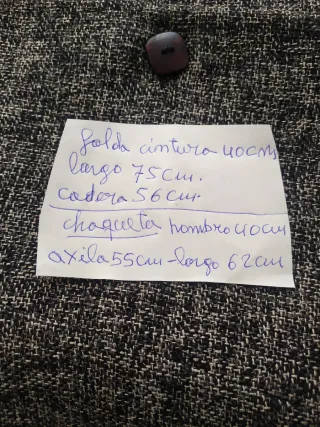 falda cintura 40cm
largo 75cm.
cadera 56cm.
chaqueta hombro 40cm
axila 55cm-largo 62cm